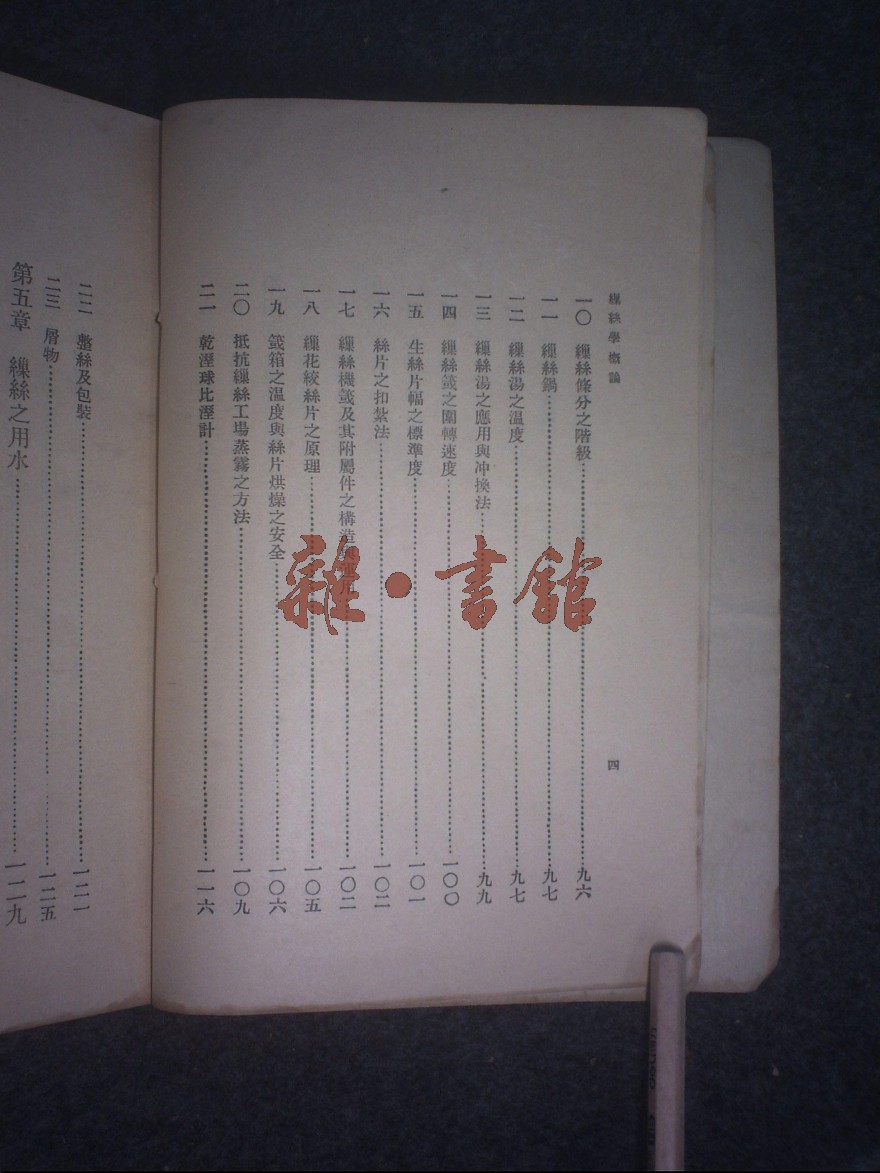 繅絲學概論
四
一〇 繅絲條分之階級 九六
一一 繅絲鍋 九七
一二 繅絲湯之溫度 九七
一三 繅絲湯之應用與冲換法 九九
一四 繅絲籰之圍轉速度 一〇〇
一五 生絲片幅之標準度 一〇一
一六 絲片之扣紮法 一〇二
一七 繅絲機籰及其附屬件之構造 一〇二
一八 繅花絞絲片之原理 一〇五
一九 籰箱之溫度與絲片烘燥之安全 一〇六
二〇 抵抗繅絲工場蒸霧之方法 一〇九
二一 乾溼球比溼計 一一六
二二 整絲及包裝 一二一
二三 屑物 一二五
第五章 繅絲之用水 一二九
雜·書館